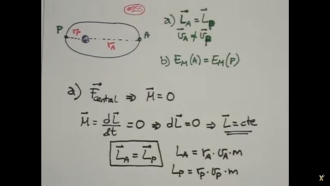 a) L⃗_A = L⃗_P
v⃗_A ≠ v⃗_P
b) E_M(A) = E_M(P)
P r_P r_A A
a) F⃗_central ⇒ M⃗ = 0
M⃗ = dL⃗/dt = 0 ⇒ dL⃗ = 0 ⇒ L⃗ = cte
L⃗_A = L⃗_P
L_A = r_A · v_A · m
L_P = r_P · v_P · m